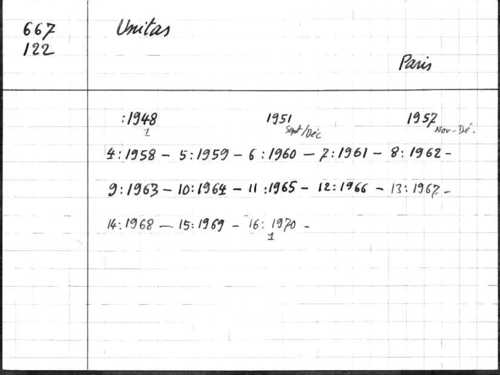 667 Unitas
122
Paris
:1948 1951 1957
1 Sept/Déc Nov-Dé.
4:1958 – 5:1959 – 6:1960 – 7:1961 – 8:1962 –
9:1963 – 10:1964 – 11:1965 – 12:1966 – 13:1967 –
14:1968 – 15:1969 – 16:1970 –
1